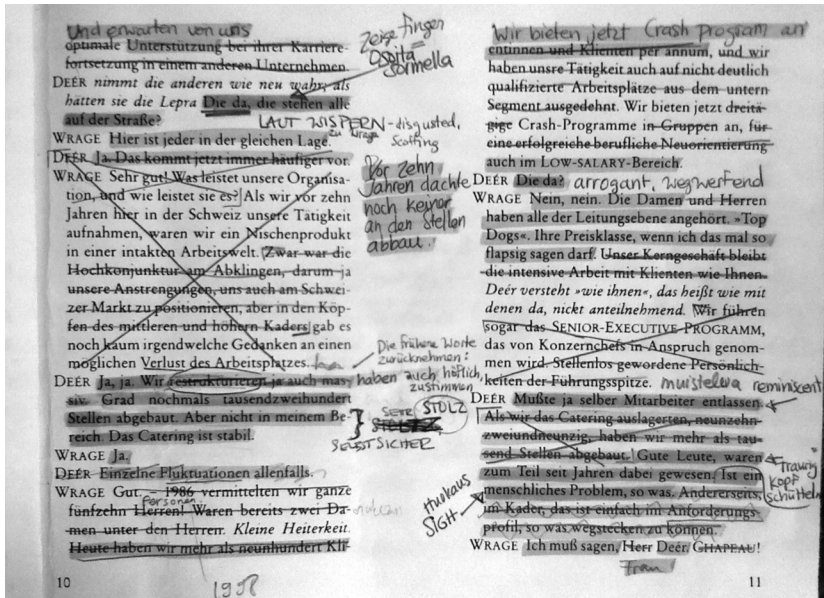 Und erwarten von uns
optimale Unterstützung bei ihrer Karriere-
fortsetzung in einem anderen Unternehmen.
DEÉR nimmt die anderen wie neu wahr, als
hätten sie die Lepra Die da, die stehen alle
auf der Straße?
WRAGE Hier ist jeder in der gleichen Lage.
DEÉR Ja. Das kommt jetzt immer häufiger vor.
WRAGE Sehr gut! Was leistet unsere Organisa-
tion, und wie leistet sie es? Als wir vor zehn
Jahren hier in der Schweiz unsere Tätigkeit
aufnahmen, waren wir ein Nischenprodukt
in einer intakten Arbeitswelt. Zwar war die
Hochkonjunktur am Abklingen, darum ja
unsere Anstrengungen, uns auch am Schwei-
zer Markt zu positionieren, aber in den Köp-
fen des mittleren und höhern Kaders gab es
noch kaum irgendwelche Gedanken an einen
möglichen Verlust des Arbeitsplatzes.
DEÉR Ja, ja. Wir restrukturieren ja auch mas-
siv. Grad nochmals tausendzweihundert
Stellen abgebaut. Aber nicht in meinem Be-
reich. Das Catering ist stabil.
WRAGE Ja.
DEÉR Einzelne Fluktuationen allenfalls.
WRAGE Gut – 1986 vermittelten wir ganze
personen
fünfzehn Herren! Waren bereits zwei Da-
men unter den Herren. Kleine Heiterkeit.
Heute haben wir mehr als neunhundert Kli-
10
1998
Zeige fingen
Osoita
sormella
LAUT WISPERN - disgusted,
zu Wrage
Vor zehn
Jahren dachte
noch keiner
an den Stellen
abbau.
Die frühere Worte
zurücknehmen:
haben auch höflich
zustimmen
SEHR STOLZ
SELBSTSICHER
Wir bieten jetzt Crash program an
entinnen und Klienten per annum, und wir
haben unsre Tätigkeit auch auf nicht deutlich
qualifizierte Arbeitsplätze aus dem untern
Segment ausgedehnt. Wir bieten jetzt dreitä-
gige Crash-Programme in Gruppen an, für
eine erfolgreiche berufliche Neuorientierung
auch im LOW-SALARY-Bereich.
DEÉR Die da? arrogant, wegwerfend
WRAGE Nein, nein. Die Damen und Herren
haben alle der Leitungsebene angehört. »Top
Dogs«. Ihre Preisklasse, wenn ich das mal so
flapsig sagen darf. Unser Kerngeschäft bleibt
die intensive Arbeit mit Klienten wie Ihnen.
Deér versteht »wie ihnen«, das heißt wie mit
denen da, nickt anteilnehmend. Wir führen
sogar das SENIOR-EXECUTIVE PROGRAMM,
das von Konzernchefs in Anspruch genom-
men wird. Stellenlos gewordene Persönlich-
keiten der Führungsspitze. muisteleva reminiscent
DEÉR Mußte ja selber Mitarbeiter entlassen.
Als wir das Catering auslagerten, neunzehn-
zweiundneunzig, haben wir mehr als tau-
send Stellen abgebaut. Gute Leute, waren
zum Teil seit Jahren dabei gewesen. Ist ein
menschliches Problem, so was. Andererseits,
im Kader, das ist einfach im Anforderungs-
profil, so was wegstecken zu können.
WRAGE Ich muß sagen, Herr Deér, CHAPEAU!
Frau
Traurig
Kopf
schütteln
Huokaus
SIGH
11